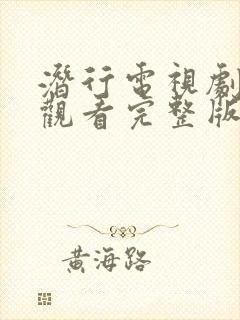 潛行電視劇
觀看完整版
黃海路